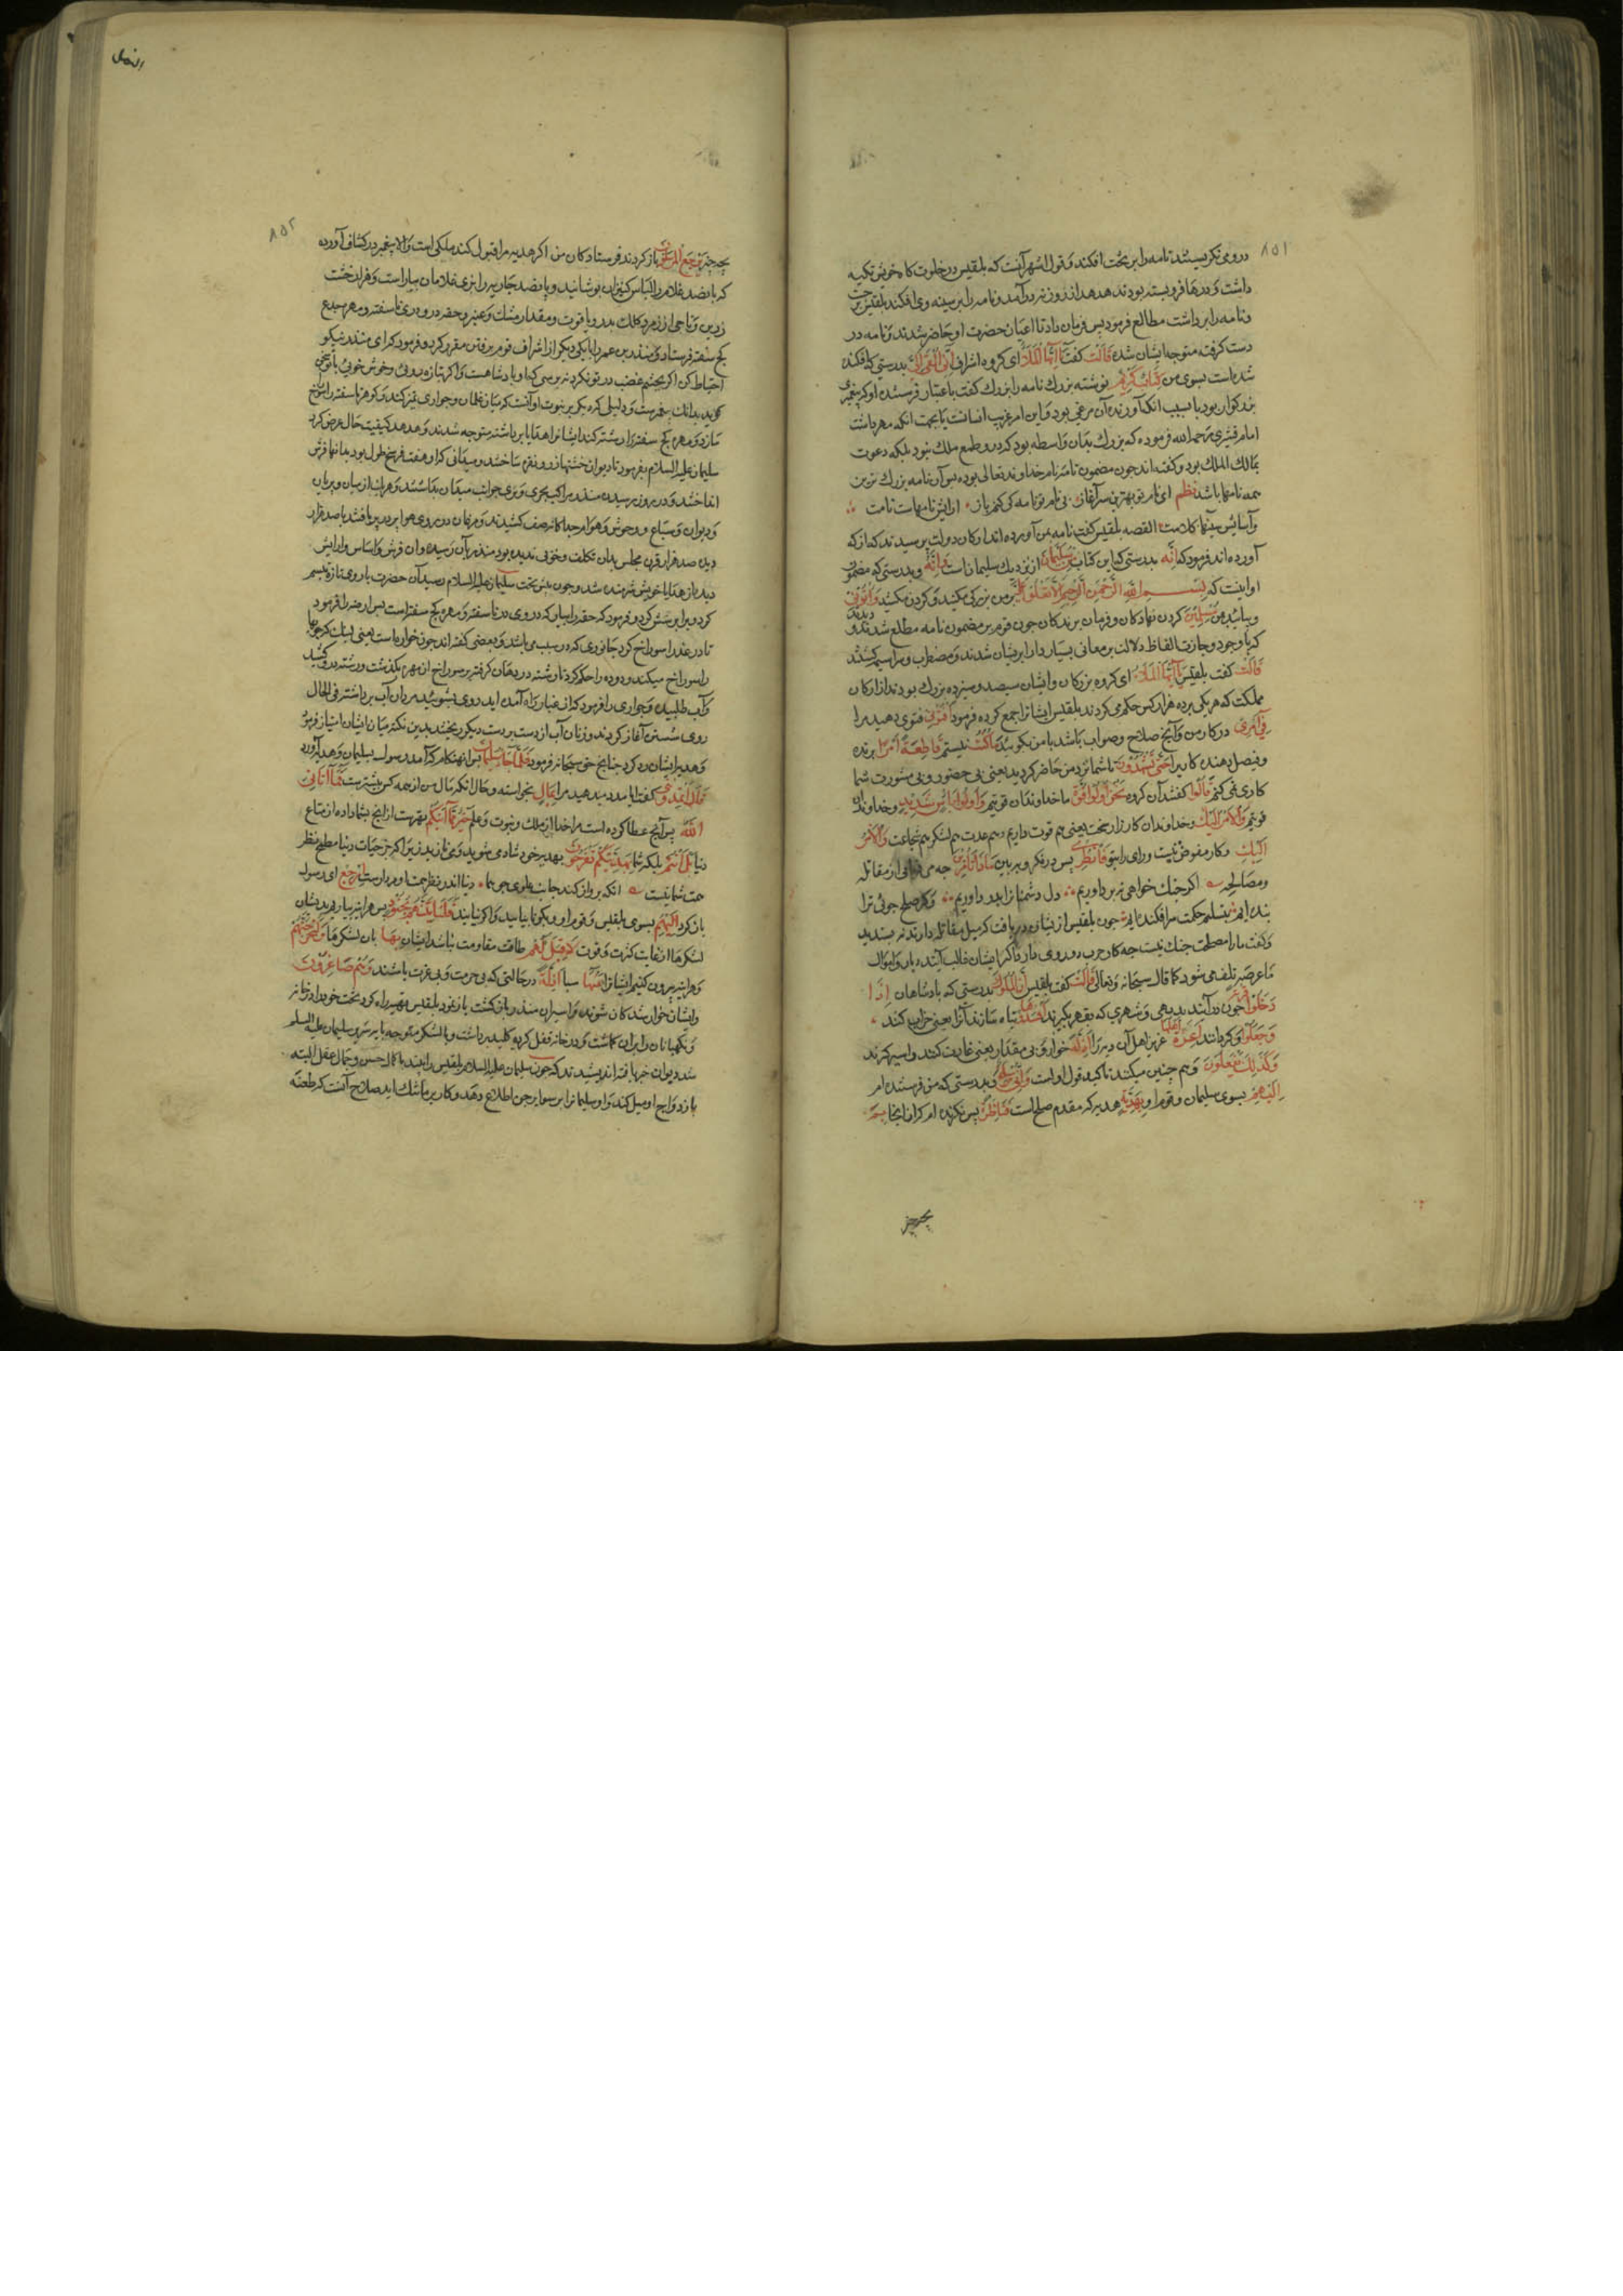 ٨٥١
درومی نکریستند نامه را بر تخت افکند و قول اشهر آنست که بلقیس در خلوت کاه خویش تکیه
داشت و درها فروبسته بودند هدهد از روزنه درآمد و نامه را بر سینه وی افکند بلقیس برجست
و نامه را برداشت مطالع فرمود پس فرمان داد تا اعیان حضرت او حاضر شدند و نامه در
دست کرفته متوجه ایشان شده قالت کفت یا ایها الملا ای کروه اشراف انی القی الی بدرستی که افکنده
شده است بسوی من کتاب کریم نوشته بزرك نامه را بزرك کفت باعتبار فرستنده او که پیغمبری
بزرکوار بود یا بسبب انکه آورنده آن مرغی بود و این امر غریب یا بجهت انکه مهر داشت
امام قشیری رحمه الله فرموده که بزرك بدان واسطه بود که درو طمع ملك نبود بلکه دعوت
بمالك الملك بود و کفته اند چون مضمون نامه نام خداوند تعالی بوده پس آن نامه بزرك ترین
همه نامها باشد نظم ای نام تو بهترین سرآغاز بی نام تو نامه کی کنم باز ارایش نامهاست نامت
و آسایش سینها کلامت القصه بلقیس کفت نامه بمن آورده اند ارکان دولت پرسیدند که از که
آورده اند فرمود که انه بدرستی که این کتاب من سلیمان از نزدیك سلیمان است و انه و بدرستی که مضمون
او اینست که بسم الله الرحمن الرحیم الا تعلوا علی بر من بزرکی مکنید و کردن مکشید و اتونی
و بیائید بمن مسلمین کردن نهادکان و فرمان برندکان چون قوم بر مضمون نامه مطلع شدند و دیدند
که با وجود وجازت الفاظ دلالت بر معانی بسیار دارد پریشان شدند و مضطرب و سراسیمه کشتند
قالت کفت بلقیس یا ایها الملا ای کروه بزرکان و ایشان سیصد و سیزده بزرك بودند از ارکان
مملکت که هر یکی بر ده هزار کس حکم می کردند بلقیس ایشانرا جمع کرده فرمود افتونی فتوی دهید مرا
فی امری در کار من و آنچ صلاح و صواب باشد با من بکوئید ما کنت نیستم قاطعة امرا برنده
و فیصل دهنده کاریرا حتی تشهدون تا شما نزد من حاضر کردید یعنی بی حضور و بی مشورت شما
کاری نمی کنم قالوا کفتند آن کروه نحن اولوا قوة ما خداوندان قوتیم و اولوا باس شدید و خداوندان
قوتیم و الامر الیك و خداوندان کارزار سخت یعنی هم قوت داریم و هم عدت هم لشکر هم شجاعت و الامر
الیك و کار مفوض بتست و رای رای تو فانظری پس درنکر و ببین ماذا تامرین چه می فرمائی از مقاتله
و مصالحه اکر جنك خواهی نبرد اوریم دل دشمنانرا بدرد اوریم و کر صلح جوئی ترا
بنده ایم بتسلیم حکمت سرافکنده ایم چون بلقیس از ایشان دریافت که میل مقاتله دارند نپسندید
و کفت ما را مصلحت جنك نیست چه کار حرب دو روی دارد اکر ایشان غالب آیند دیار و اموال
ما عرضه تلف می شود کما قال سبحانه و تعالی قالت کفت بلقیس ان الملوك بدرستی که پادشاهان اذا
دخلوا قریة چون درآیند بدیهی و شهری که بقهر بکیرند افسدوها تباه سازند آنرا یعنی خراب کنند
و جعلوا و کردانند اعزة اهلها عزیزان اهل آن دیه را اذلة خوار و بی مقدار یعنی غارت کنند و اسیر کیرند
و کذلك یفعلون و هم چنین میکنند تاکید قول اوست و انی مرسلة و بدرستی که من فرستنده ام
الیهم بسوی سلیمان و قوم او بهدیة هدیه که مقدمه صلح است فناظرة پس نکرنده ام که از ان ایجا بم
بچه چیز
النمل
٨٥٢
بچه چیز یرجع المرسلون باز کردند فرستادکان من اکر هدیه مرا قبول کند ملکی است و الا پیغمبر در کشاف آورده
که پانصد غلام را لباس کنیزان پوشانید و پانصد جاریه را بزی غلامان بیاراست و هزار خشت
زرین و تاجی از زر مکلل بدر و یاقوت و مقدار مشك و عنبر و حقه درو دری ناسفته و مهره جزع
کج سفته فرستاد و منذر بن عمرو را با یکی دیکر از اشراف قوم برفتن مقرر کرد و فرمود که ای منذر نیکو
احتیاط کن اکر بچشم غضب در تو نکرد نترسی که او پادشاهست و اکر بتازه روئی و خوش خوئی با تو سخن
کوید بدانك پیغمبرست و دلیلی دیکر بر نبوت او آنست که میان غلمان و جواری تمیز کند و کوهر ناسفته را سوراخ
سازد و مهره کج سفته را رشته کند ایشان هدایا برداشته متوجه شدند و هدهد کیفیت حال عرض کرد
سلیمان علیه السلام بفرمود تا دیوان خشتها از زر و نقره ساختند و میدانی که او هفت فرسخ طول بود بدانها فرش
انداختند و در روز رسیدن منذر مراکب بحری و بری جوانب میدان بداشتند و هزاران از میان و پریان
و دیوان و سباع و وحوش و هوام جداکانه صف کشیدند و مرغان در روی هوا پر در پر بافتند با صد قرار
دیده صد هزار قرن مجلس بدان تکلف و خوبی ندیده بود منذر بآن رسیده و آن فرش و اساس و ارایش
دید از هدایا خویش شرمنده شد و چون پیش تخت سلیمان علیه السلام رسید آن حضرت با روی تازه تبسم
کرد و پرسش کرد و فرمود که حقه را بیار که در وی در ناسفته و مهره کج سفته است پس ارضه را فرمود
تا در عذرا سوراخ کرد جانوری که در سیب می باشد و بعضی کفته اند چوب خواره است
را سوراخ میکند و دوده را حکم کرد تا رشته در دهان کرفته بر سوراخ از مهره بکذشت و رشته درو کشید
و آب طلبید و جواری را فرمود که از غبار راه آمده اید روی بشوئید مردان آب برداشته فی الحال
روی شستن آغاز کردند و زنان آب از دست بردست دیکر ریختند بدین نکته میان ایشان امتیاز فرمود
و هدیه ایشان رد کرد چنانچه حق سبحانه فرمود فلما جاء سلیمان پس انهنکام که آمد رسول بسلیمان و هدیه آورد
قال اتمدونن کفت ایا مدد میدهید مرا بمال بخواسته و حال انکه مال من از همه کس بیشترست فما آتانی
الله پس آنچ عطا کرده است مرا خدا از ملك و نبوت و علم خیر مما آتیکم بهترست از آنچ بشما داده از متاع
دنیا بل انتم بلکه شما بهدیتکم تفرحون بهدیه خود شادمی شوید و می نازید زیرا که جز حیات دنیا مطمح نظر
همت شما نیست انکه پرواز کند جانب علوی چو هما دنیا اندر نظر همت او مردارست ارجع ای رسول
باز کرد الیهم بسوی بلقیس و قوم او و بکو تا بیایند و اکر نیایند فلناتینهم بجنود پس هراینه بیاریم بدیشان
لشکرها از غایت کثرت و قوت لا قبل لهم طاقت مقاومت نباشد ایشان بها بان لشکرها و لنخرجنهم
و هراینه بیرون کنیم ایشانرا منها سبا اذلة در حالتی که بی حرمت و بی عزت باشند و هم صاغرون
و ایشان خوار شدکان شوند و اسیران منذر بازکشت بلقیس تهیه راه کرد و تخت خود را در خانه
و نکهبانان را بران کماشت و در خانه قفل کرد و کلید برداشت و با لشکر متوجه پایه سریر سلیمان علیه السلام
شد دیوان خبر یافته اندیشیدند که چون سلیمان علیه السلام بلقیس را بیند با کمال حسن و جمال عقل البته
بازدواج او میل کند و او سلیمانرا بر سرایر جن اطلاع دهد و کار بر ما تنك اید صلاح آنست که طعنه